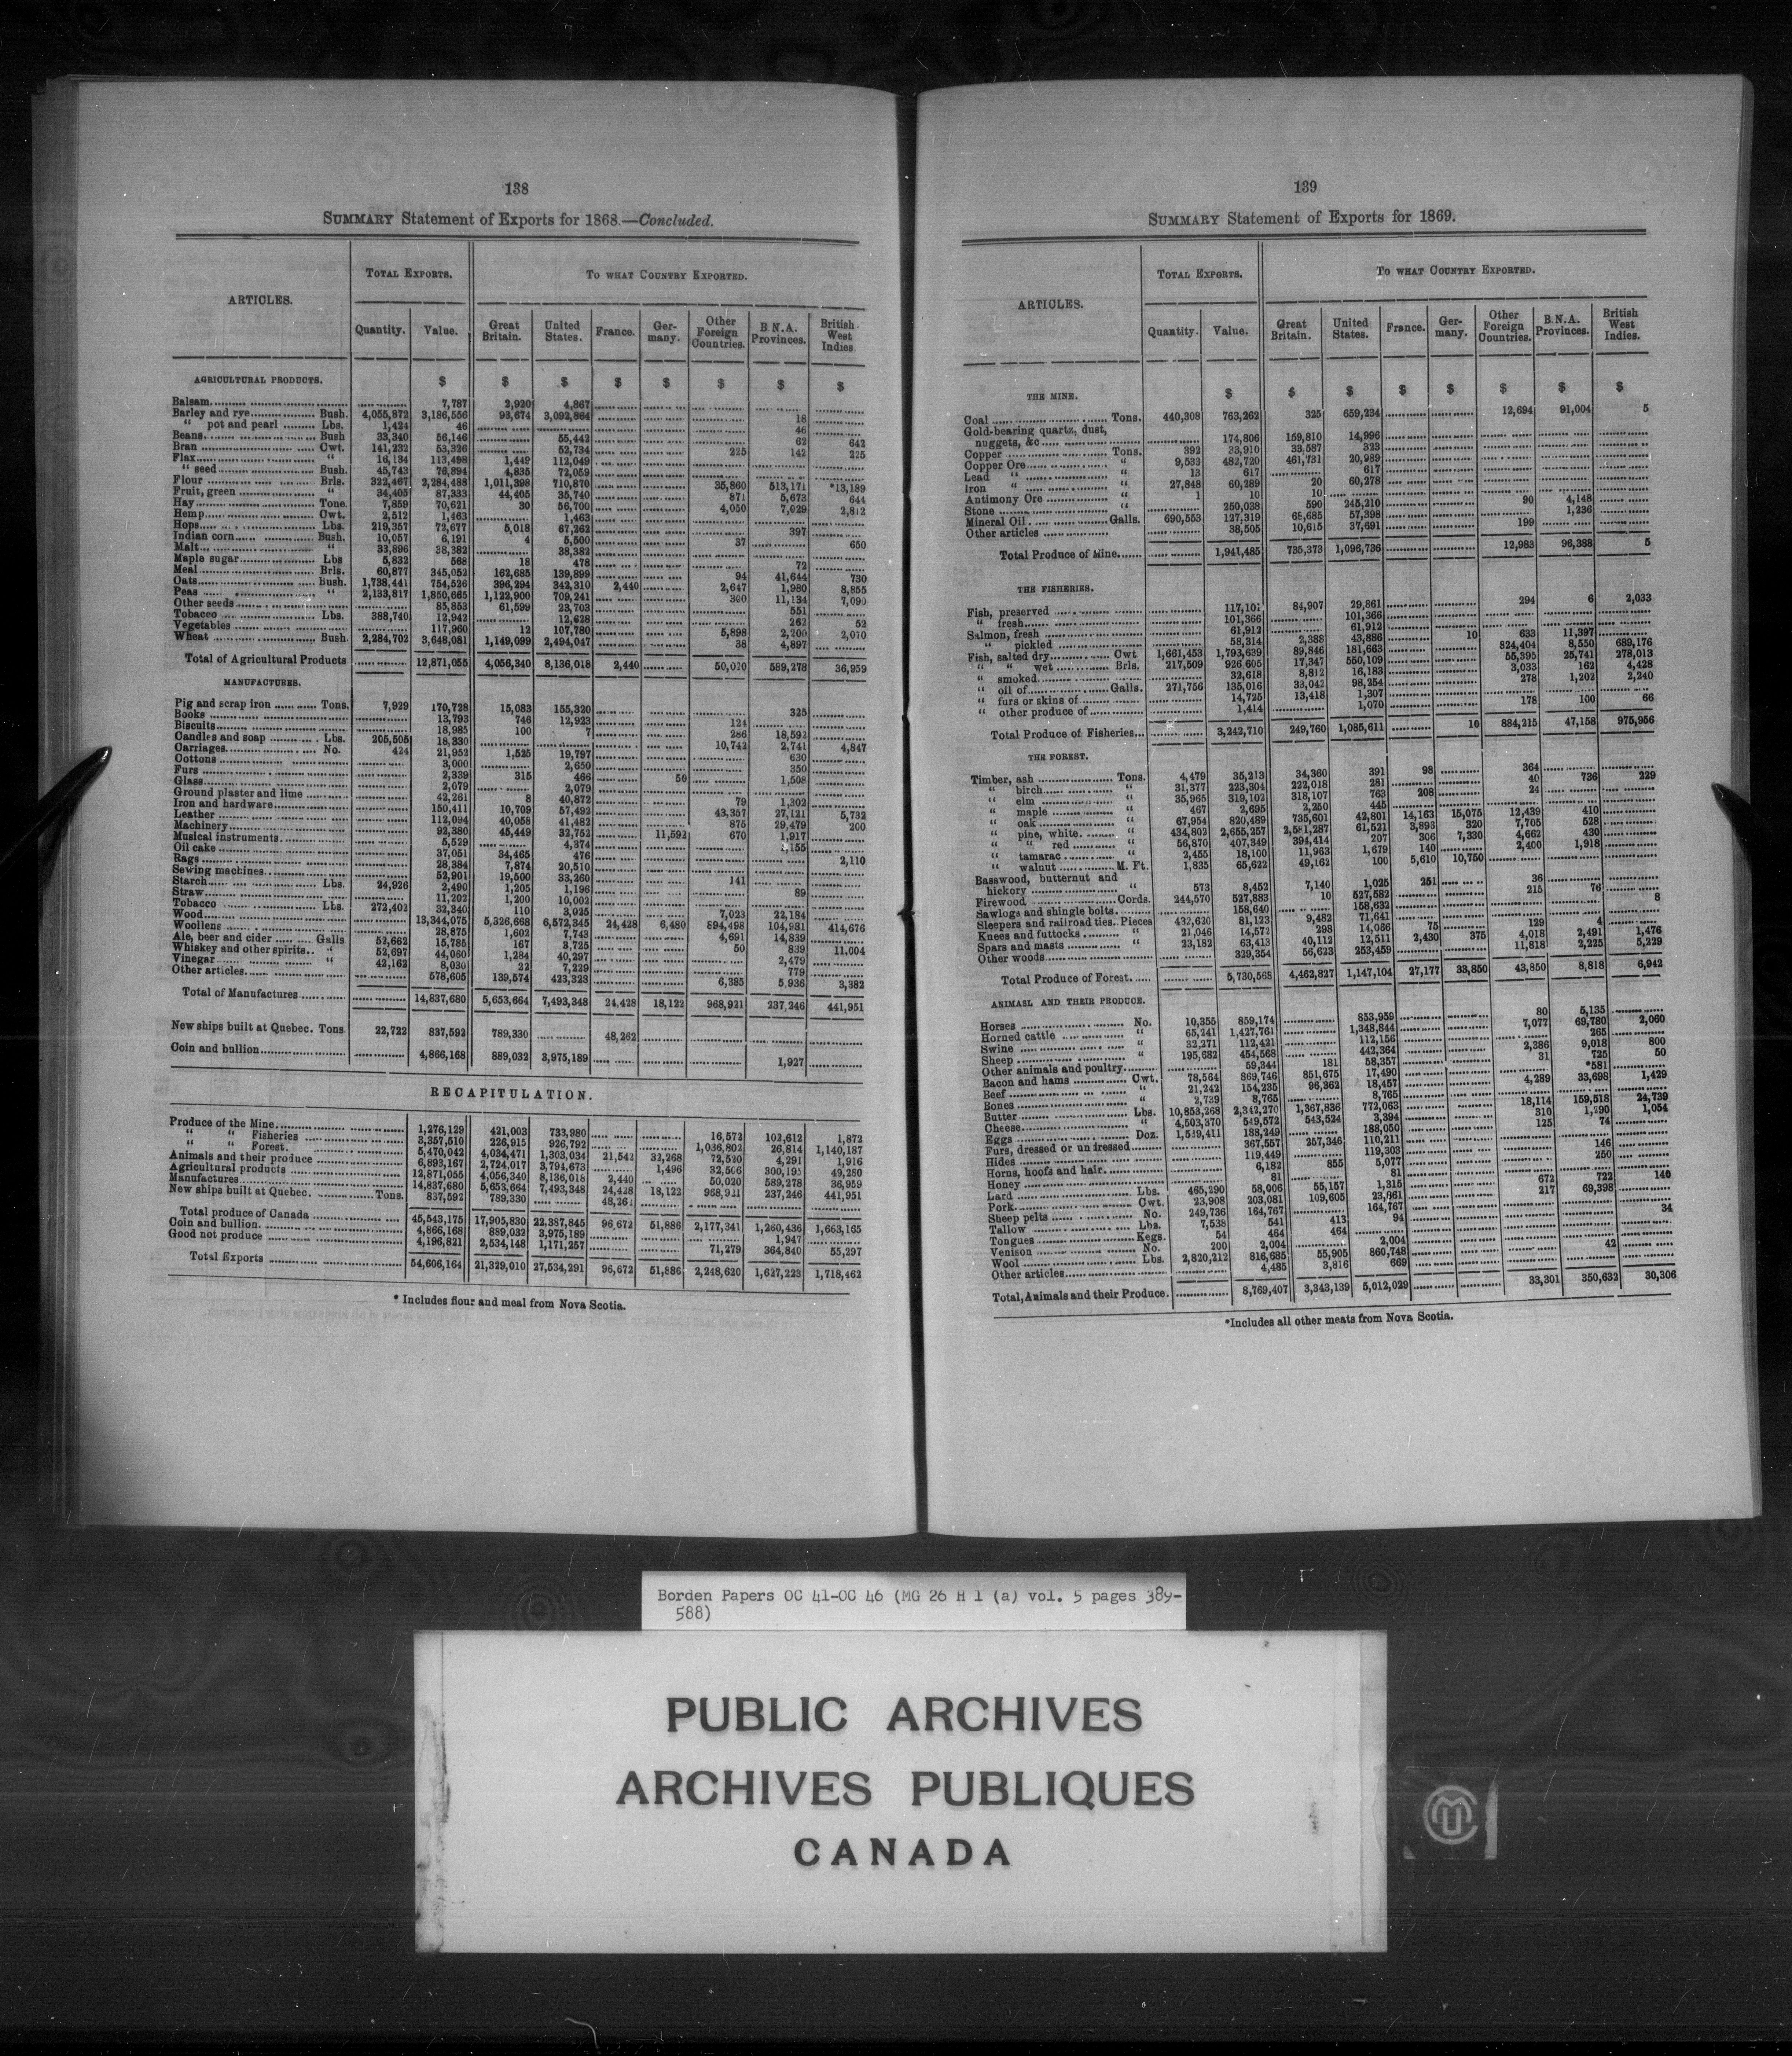 138
SUMMARY Statement of Exports for 1868.—Concluded.
ARTICLES. TOTAL EXPORTS. TO WHAT COUNTRY EXPORTED.
Quantity. Value. Great Britain. United States. France. Germany. Other Foreign Countries. B.N.A. Provinces. British West Indies
AGRICULTURAL PRODUCTS. $ $ $ $ $ $ $ $
Balsam 7,787 2,920 4,867
Barley and rye Bush. 4,055,872 3,186,556 93,674 3,092,864 18
“ pot and pearl Lbs. 1,424 46 46
Beans Bush 33,340 56,146 55,442 62 642
Bran Cwt. 141,232 53,326 52,734 225 142 225
Flax “ 16,134 113,498 1,449 112,049
“ seed Bush. 45,743 76,894 4,835 72,059
Flour Brls. 322,467 2,284,488 1,011,398 710,870 35,860 513,171 *13,189
Fruit, green “ 34,405 87,333 44,405 35,740 871 5,673 644
Hay Tone. 7,859 70,621 30 56,700 4,050 7,029 2,812
Hemp Cwt. 2,512 1,463 1,463
Hops Lbs. 219,357 72,677 5,018 67,262 397
Indian corn Bush. 10,057 6,191 4 5,500 37 650
Malt “ 33,896 38,382 38,382
Maple sugar Lbs 5,832 568 18 478 72
Meal Brls. 60,877 345,052 162,685 139,899 94 41,644 730
Oats Bush. 1,738,441 754,526 396,294 342,310 2,440 2,647 1,980 8,855
Peas “ 2,133,817 1,850,665 1,122,900 709,241 300 11,134 7,090
Other seeds 85,853 61,599 23,703 551
Tobacco Lbs. 388,740 12,942 12,628 262 52
Vegetables 117,960 12 107,780 5,898 2,200 2,070
Wheat Bush. 2,284,702 3,648,081 1,149,099 2,494,047 38 4,897
Total of Agricultural Products 12,871,055 4,056,340 8,136,018 2,440 50,020 589,278 36,959
MANUFACTURES.
Pig and scrap iron Tons. 7,929 170,728 15,083 155,320 325
Books 13,793 746 12,923 124
Biscuits 18,985 100 7 286 18,592
Candles and soap Lbs. 205,505 18,330 10,742 2,741 4,847
Carriages No. 424 21,952 1,525 19,797 630
Cottons 3,000 2,650 350
Furs 2,339 315 466 50 1,508
Glass 2,079 2,079
Ground plaster and lime 42,261 8 40,872 79 1,302
Iron and hardware 150,411 10,709 57,492 43,357 27,121 5,732
Leather 112,094 40,058 41,482 875 29,479 200
Machinery 92,380 45,449 32,752 11,592 670 1,917
Musical instruments 5,529 4,374 1,155
Oil cake 37,051 34,465 476 2,110
Rags 28,384 7,874 20,510
Sewing machines 52,901 19,500 33,260 141
Starch Lbs. 24,926 2,490 1,205 1,196 89
Straw 11,202 1,200 10,002
Tobacco Lbs. 272,402 32,340 110 3,025 7,023 22,184
Wood 13,344,075 5,326,668 6,572,345 24,428 6,480 894,498 104,981 414,676
Woollens 28,875 1,602 7,743 4,691 14,839
Ale, beer and cider Galls 52,662 15,785 167 3,725 50 839 11,004
Whiskey and other spirits “ 52,697 44,060 1,284 40,297 2,479
Vinegar “ 42,162 8,030 22 7,229 779
Other articles 578,605 139,574 423,328 6,385 5,936 3,382
Total of Manufactures 14,837,680 5,653,664 7,493,348 24,428 18,122 968,921 237,246 441,951
New ships built at Quebec. Tons 22,722 837,592 789,330 48,262
Coin and bullion 4,866,168 889,032 3,975,189 1,927
RECAPITULATION.
Produce of the Mine 1,276,129 421,003 733,980 16,572 102,612 1,872
“ “ Fisheries 3,357,510 226,915 926,792 1,036,802 26,814 1,140,187
“ “ Forest. 5,470,042 4,034,471 1,303,034 21,542 32,268 72,520 4,291 1,916
Animals and their produce 6,893,167 2,724,017 3,794,673 1,496 32,506 300,195 49,280
Agricultural products 12,871,055 4,056,340 8,136,018 2,440 50,020 589,278 36,959
Manufactures 14,837,680 5,653,664 7,493,348 24,428 18,122 968,921 237,246 441,951
New ships built at Quebec. Tons. 837,592 789,330 48,262
Total produce of Canada 45,543,175 17,905,830 22,387,845 96,672 51,886 2,177,341 1,260,436 1,663,165
Coin and bullion. 4,866,168 889,032 3,975,189 1,947
Good not produce 4,196,821 2,534,148 1,171,257 71,279 364,840 55,297
Total Exports 54,606,164 21,329,010 27,534,291 96,672 51,886 2,248,620 1,627,223 1,718,462
* Includes flour and meal from Nova Scotia.
139
SUMMARY Statement of Exports for 1869.
ARTICLES. TOTAL EXPORTS. TO WHAT COUNTRY EXPORTED.
Quantity. Value. Great Britain. United States. France. Germany. Other Foreign Countries. B.N.A. Provinces. British West Indies.
$ $ $ $ $ $ $ $
THE MINE.
Coal Tons. 440,308 763,262 325 659,234 12,694 91,004 5
Gold-bearing quartz, dust,
nuggets, &c 174,806 159,810 14,996
Copper Tons. 392 33,910 33,587 323
Copper Ore “ 9,533 482,720 461,731 20,989
Lead “ “ 13 617 617
Iron “ “ 27,848 60,289 20 60,278
Antimony Ore “ 1 10 10
Stone “ 250,038 590 245,210 90 4,148
Mineral Oil Galls. 690,553 127,319 68,685 57,398 1,236
Other articles 38,505 10,615 37,691 199
Total Produce of Mine 1,941,485 735,373 1,096,736 12,983 96,388 5
THE FISHERIES.
Fish, preserved 117,101 84,907 29,861 294 6 2,033
“ fresh 101,366 101,366
Salmon, fresh 61,912 61,912
“ pickled 58,314 2,388 43,886 10 633 11,397
Fish, salted dry Cwt 1,661,453 1,793,639 89,846 181,663 824,404 8,550 689,176
“ “ wet Brls. 217,509 926,605 17,347 550,109 55,395 25,741 278,013
“ smoked 32,618 8,812 16,183 3,033 162 4,428
“ oil of Galls. 271,756 135,016 33,042 98,254 278 1,202 2,240
“ furs or skins of 14,725 13,418 1,307
“ other produce of 1,414 1,070 178 100 66
Total Produce of Fisheries 3,242,710 249,760 1,085,611 10 884,215 47,158 975,956
THE FOREST.
Timber, ash Tons. 4,479 35,213 34,360 391 98 364
“ birch “ 31,377 223,304 222,018 281 40 736 229
“ elm “ 35,965 319,102 318,107 763 208 24
“ maple “ 467 2,695 2,250 445
“ oak “ 67,954 820,489 735,601 42,801 14,163 15,075 12,439 410
“ pine, white. “ 434,802 2,655,257 2,581,287 61,521 3,896 320 7,705 528
“ “ red “ 56,870 407,349 394,414 207 306 7,330 4,662 430
“ tamarac “ 2,455 18,100 11,963 1,679 140 2,400 1,918
“ walnut M. Ft. 1,835 65,622 49,162 100 5,610 10,750
Basswood, butternut and
hickory “ 573 8,452 7,140 1,025 251 36
Firewood Cords. 244,570 527,883 10 527,582 215 76
Sawlogs and shingle bolts 158,640 158,632 8
Sleepers and railroad ties. Pieces 432,630 81,123 9,482 71,641
Knees and futtocks “ 21,046 14,572 298 14,066 75 129 4
Spars and masts “ 23,182 63,413 40,112 12,511 2,430 375 4,018 2,491 1,476
Other woods 329,354 56,623 253,459 11,818 2,225 5,229
Total Produce of Forest 5,730,568 4,462,827 1,147,104 27,177 33,850 43,850 8,818 6,942
ANIMASL AND THEIR PRODUCE.
Horses No. 10,355 859,174 853,959 80 5,135
Horned cattle “ 65,241 1,427,761 1,348,844 7,077 69,780 2,060
Swine “ 32,271 112,421 112,156 265
Sheep “ 195,682 454,568 442,364 2,386 9,018 800
Other animals and poultry 59,344 181 58,357 31 725 50
Bacon and hams Cwt. 78,564 869,746 851,675 17,490 *581
Beef “ 21,242 154,235 96,362 18,457 4,289 33,698 1,429
Bones “ 2,739 8,765 8,765
Butter Lbs. 10,853,268 2,342,270 1,367,836 772,063 18,114 159,518 24,739
Cheese “ 4,503,370 549,572 543,524 3,394 310 1,290 1,054
Eggs Doz. 1,539,411 188,249 188,050 125 74
Furs, dressed or undressed 367,557 257,346 110,211
Hides 119,449 119,303 146
Horns, hoofs and hair 6,182 855 5,077 250
Honey 81 81
Lard Lbs. 465,290 58,006 55,157 1,315 672 722 140
Pork Cwt. 23,908 203,081 109,605 23,861 217 69,398
Sheep pelts No. 249,736 164,767 164,767
Tallow Lbs. 7,538 541 413 94 34
Tongues Kegs. 54 464 464
Venison No. 200 2,004 2,004
Wool Lbs. 2,820,212 816,685 55,905 860,748 42
Other articles 4,485 3,816 669
Total, Animals and their Produce. 8,769,407 3,343,139 5,012,029 33,301 350,632 30,306
*Includes all other meats from Nova Scotia.
Borden Papers OC 41-OC 46 (MG 26 H 1 (a) vol. 5 pages 389-
588)
PUBLIC ARCHIVES
ARCHIVES PUBLIQUES
CANADA